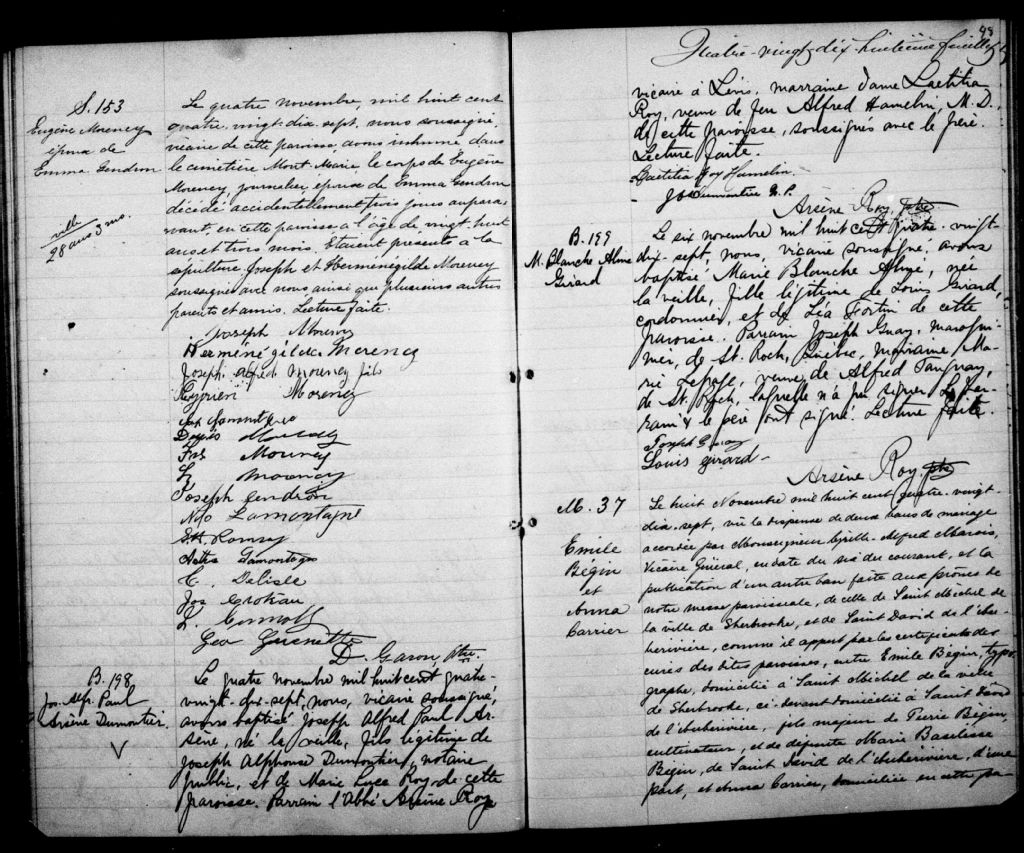 S. 153
Eugène Morency
époux de
Emma Gendron
ville
28 ans 3 mo.
Le quatre novembre, mil huit cent
quatre-vingt-dix-sept, nous soussigné,
vicaire de cette paroisse, avons inhumé dans
le cimetière Mont-Marie, le corps de Eugène
Morency, journalier, époux de Emma Gendron
décédé accidentellement trois jours aupara-
vant, en cette paroisse à l'âge de vingt-huit
ans et trois mois. Etaient présents à la
sépulture Joseph et Herménégilde Morency
soussignés avec nous ainsi que plusieurs autres
parents et amis. Lecture faite.
Joseph Morency
Herménégilde Morency
Joseph Alfred Morency fils
Morency
Morency
Morency
Morency
Joseph Gendron
Lamontagne
Lamontagne
C. Delisle
Jos Croteau
Geo Guenette
D. Garon, Ptre.
B. 198
Jos. Alf. Paul
Arsène Dumontier
Le quatre novembre mil huit cent quatre-
vingt-dix-sept, nous, vicaire soussigné,
avons baptisé Joseph Alfred Paul Ar-
sène, né la veille, fils légitime de
Joseph Alphonse Dumontier, notaire
public, et de Marie Luce Roy de cette
paroisse. Parrain l'Abbé Arsène Roy
98
Quatre-vingt-dix-huitième feuillet
vicaire à Lévis, marraine dame Laetitia
Roy, veuve de feu Alfred Hamelin, M.D.
de cette paroisse, soussignés avec le père.
Lecture faite.
Laetitia Roy Hamelin.
Jos Dumontier N.P.
Arsène Roy, ptre
B. 199
M. Blanche Alme
Girard
Le six novembre mil huit cent quatre-vingt-
dix-sept, nous, vicaire soussigné, avons
baptisé Marie Blanche, née
la veille, fille légitime de Louis Girard,
cordonnier, et de Léa Fortin de cette
paroisse. Parrain Joseph Guay, maroqui-
nier, de St. Roch, Québec, marraine, Ma-
rie Lepage, veuve de Alfred Tanguay,
de St. Roch, laquelle n'a pu signer. Le par-
rain & le père ont signé. Lecture faite.
Joseph Guay
Louis Girard
Arsène Roy, ptre
M. 37
Emile
Bégin
et
Anna
Carrier
Le huit Novembre mil huit cent quatre-vingt-
dix-sept, vu la dispense de deux bans de mariage
accordée par Monseigneur Cyrille-Alfred Marois,
Vicaire Général, en date du six du courant, et la
publication d'un autre ban faite aux prônes de
notre messe paroissiale, de celle de Saint Michel de
la ville de Sherbrooke, et de Saint David de l'Aube-
rivière, comme il appert par les certificats des
curés des dites paroisses, entre Emile Bégin, typo-
graphe, domicilié à Saint Michel de la ville
de Sherbrooke, ci-devant domicilié à Saint David
de l'Auberivière, fils majeur de Pierre Bégin,
cultivateur, et de défunte Marie Basilisse
Bégin, de Saint David de l'Auberivière, d'une
part, et Anna Carrier, domiciliée en cette pa-